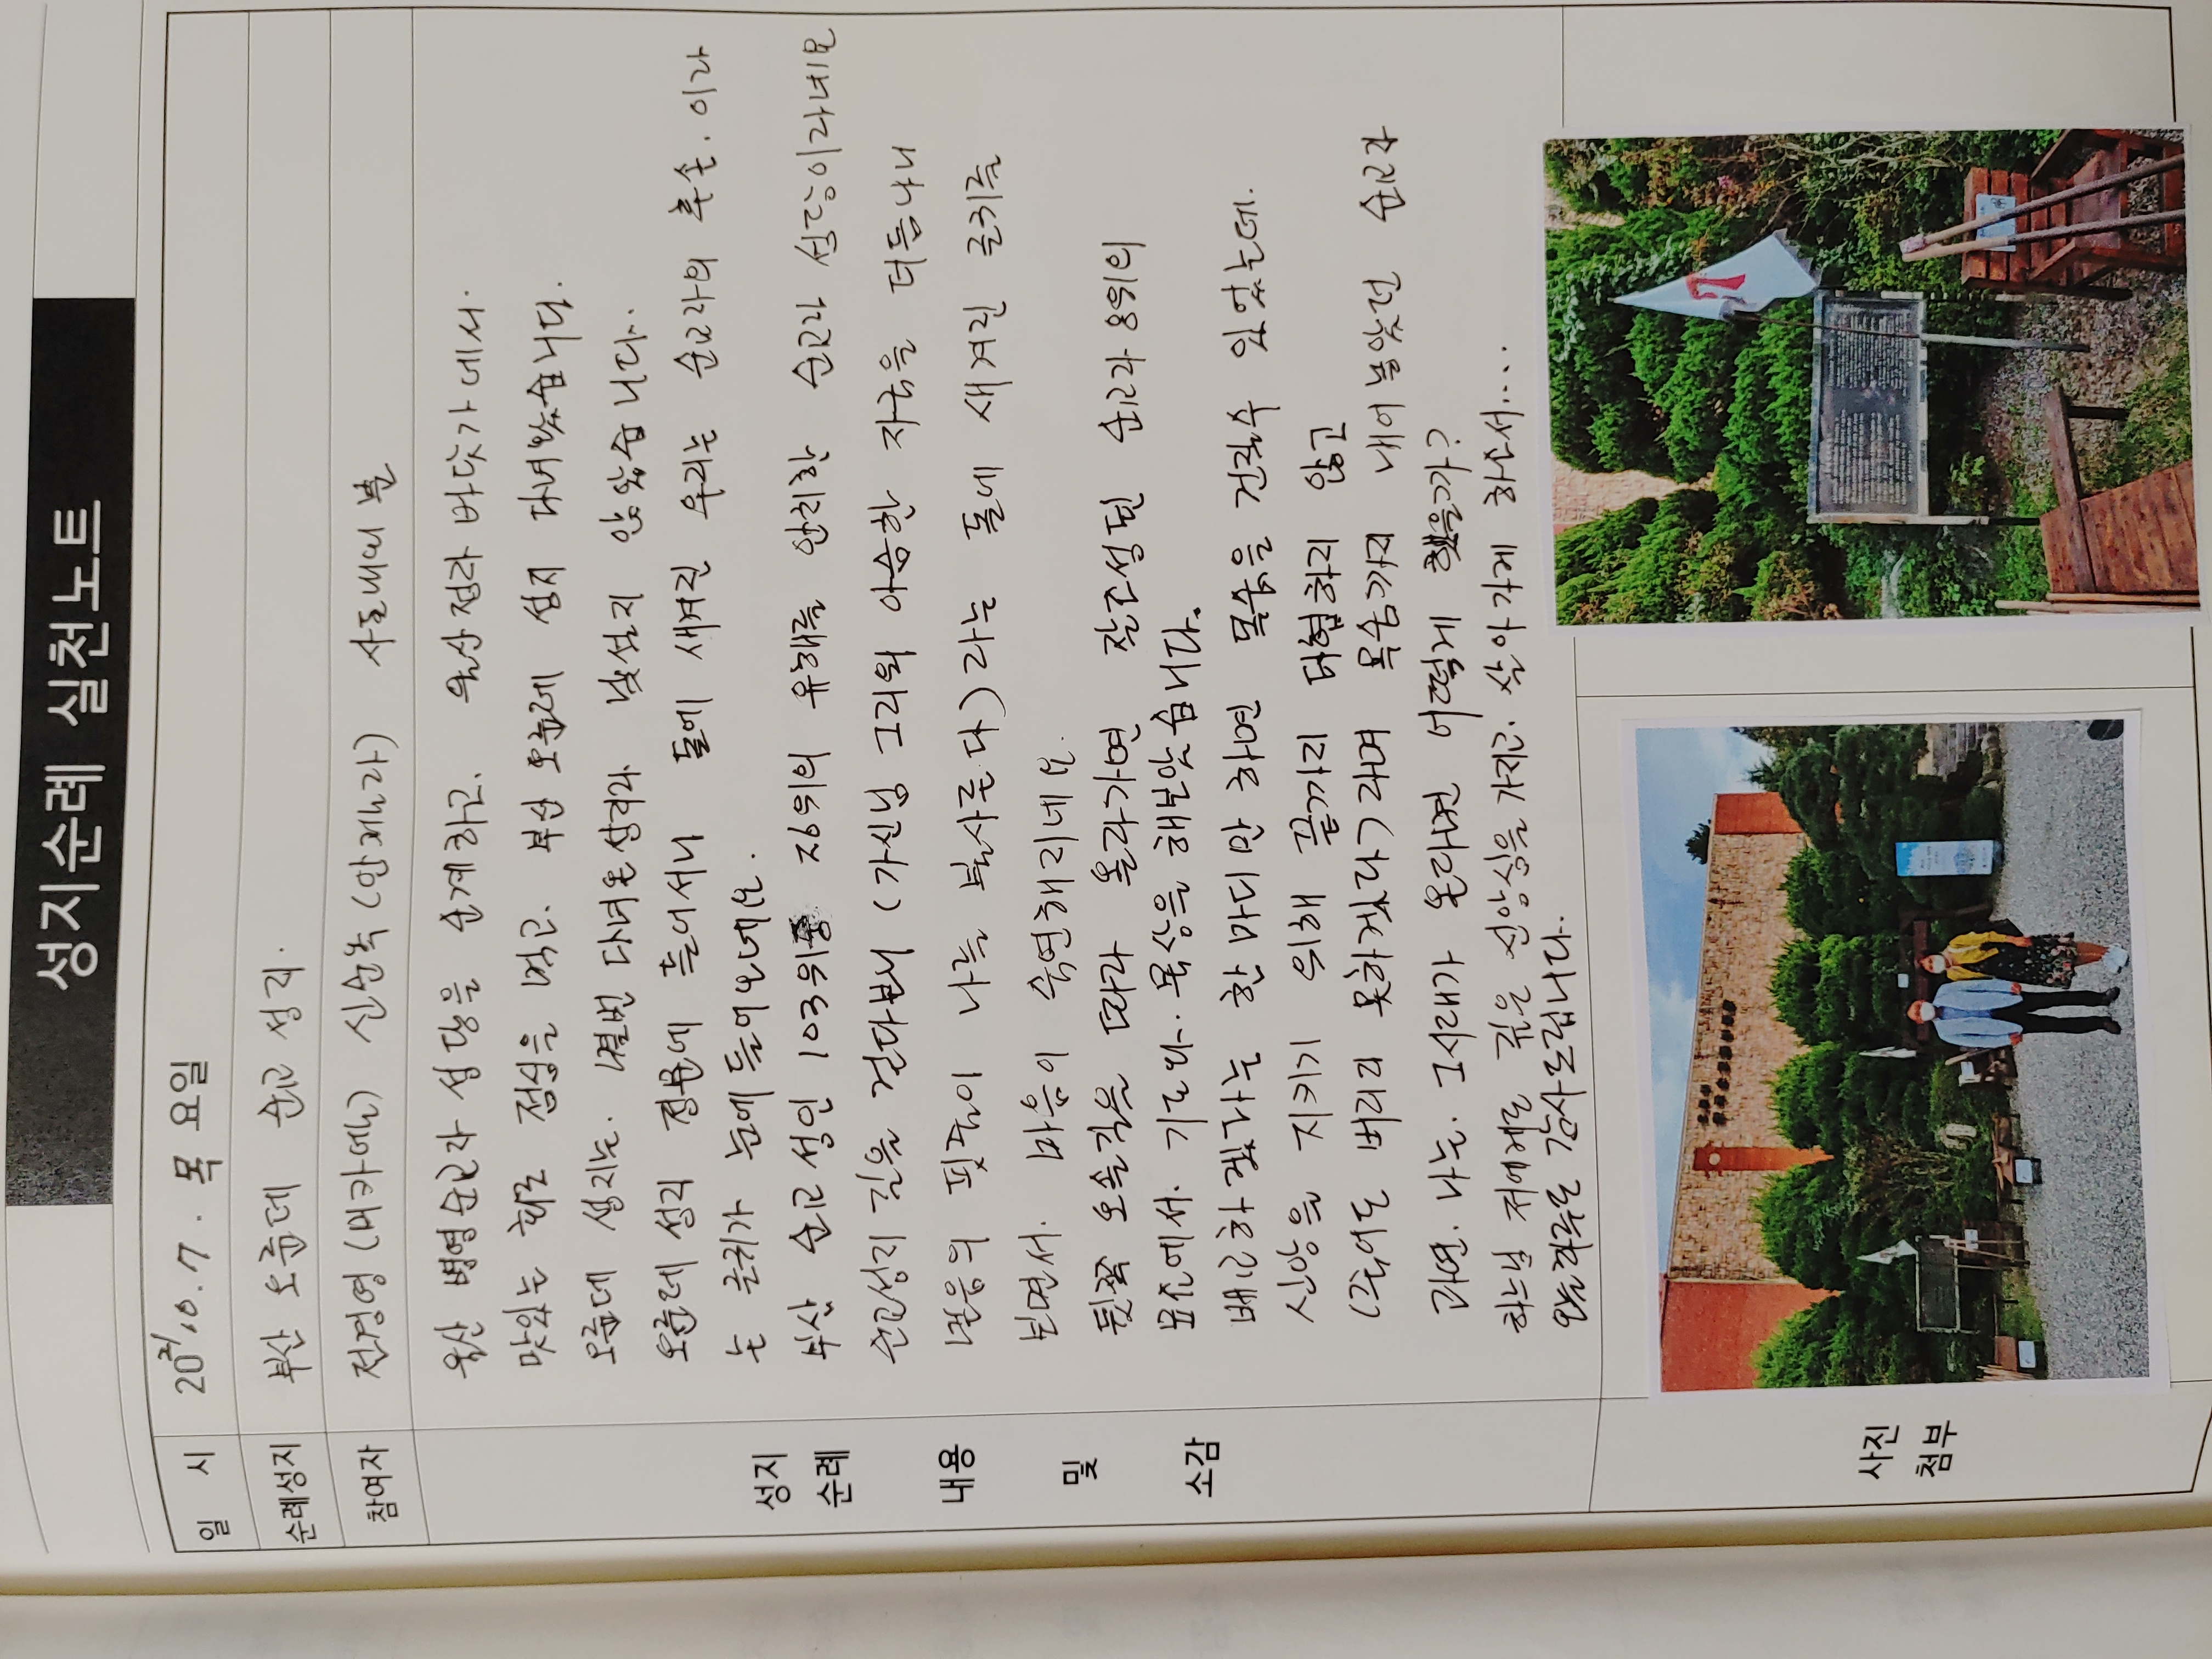 성지순례 실천노트
일 시 2021. 10. 7. 목 요일
순례성지 부산 오륜대 순교 성지.
참여자 전경영 (미카엘) 신순옥 (안젤라) 사도내외 분
울산 병영순교자 성당을 순례하고. 울산 정자 바닷가에서.
맛있는 회로 점심을 먹고. 부산 오륜대 성지 다녀왔습니다.
오륜대 성지는. 몇번 다녀온성지라 낯설지 않았습니다.
오륜대 성지 정문에 들어서니 돌에 새겨진 우리는 순교자의 후손. 이라
는 글귀가 눈에 들어오네요.
부산 순교 성인 103위중 26위의 유해를 안치한 순교자 성당이라네요
순교성지 길을 걷다보니 (가신님 그리워 아슴한 자국을 더듬나니
믿음의 핏줄이 나를 불사른다) 라는 돌에 새겨진 글귀를
보면서. 마음이 숙연해지네요.
뒷쪽 오솔길을 따라 올라가면 잘조성된 순교자 8위의
묘소에서. 기도와. 묵상을 해보았습니다.
배교하겠다는 한마디만 하면 목숨을 건질수 있었는데.
신앙을 지키기 위해 끝까지 타협하지 않고
(죽어도 버리지 못하겠다) 라며 목숨까지 내어놓았던 순교자
라면. 나는. 그시대가 온다면 어떻게 했을까?
하느님 저에게도 깊은 신앙심을 가지고. 살아가게 하소서....
오늘하루도 감사드립니다.
성지
순례
내용
및
소감
사진
첨부